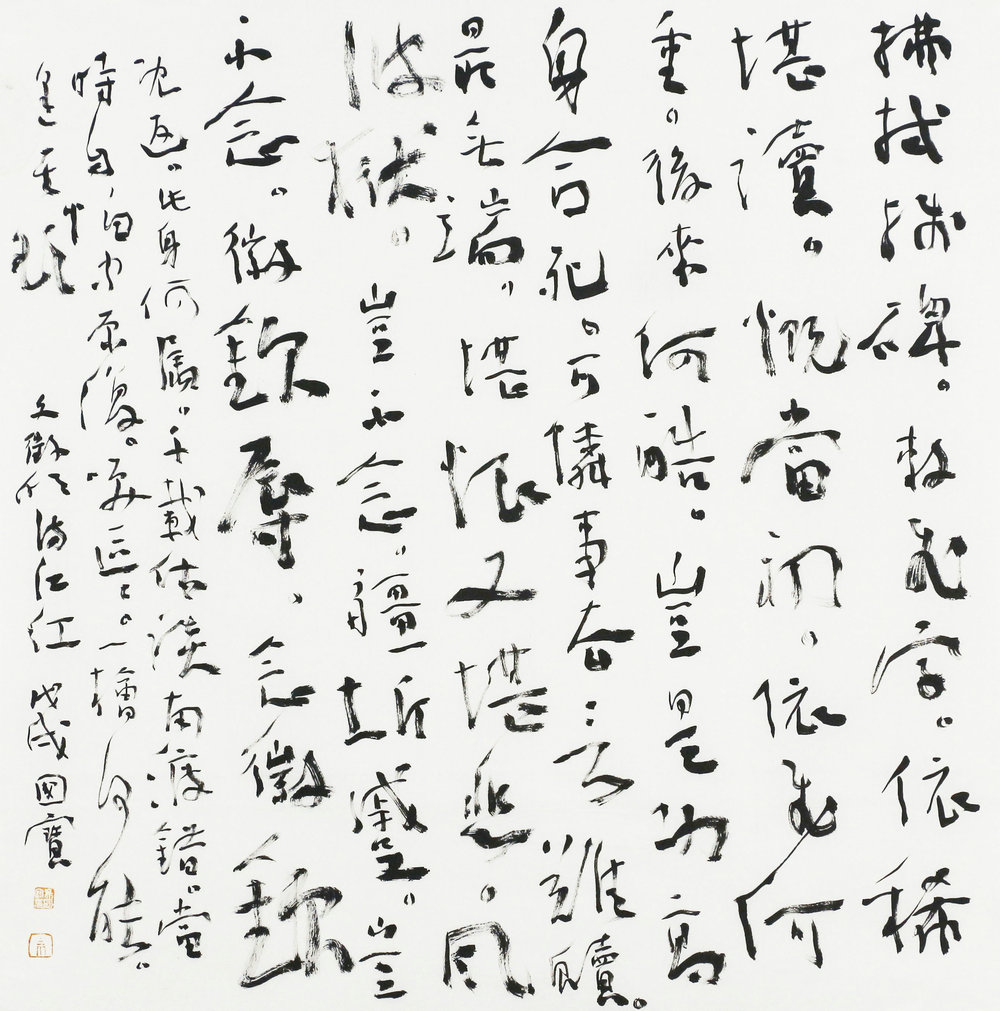 拂拭殘碑。敕飛字。依稀
堪讀。慨當初。依飛何
重。後來何酷。豈是功高
身合死。可憐事去言難贖。
最無端。堪恨又堪悲。風
波獄。豈不念。疆圻蹙。豈
不念。徽欽辱、念徽欽
返。此身何屬。千載休談南渡錯。當
時自怕中原復。笑區區。一檜何能。
逢其欲 文徵明滿江紅 戊戌國寶